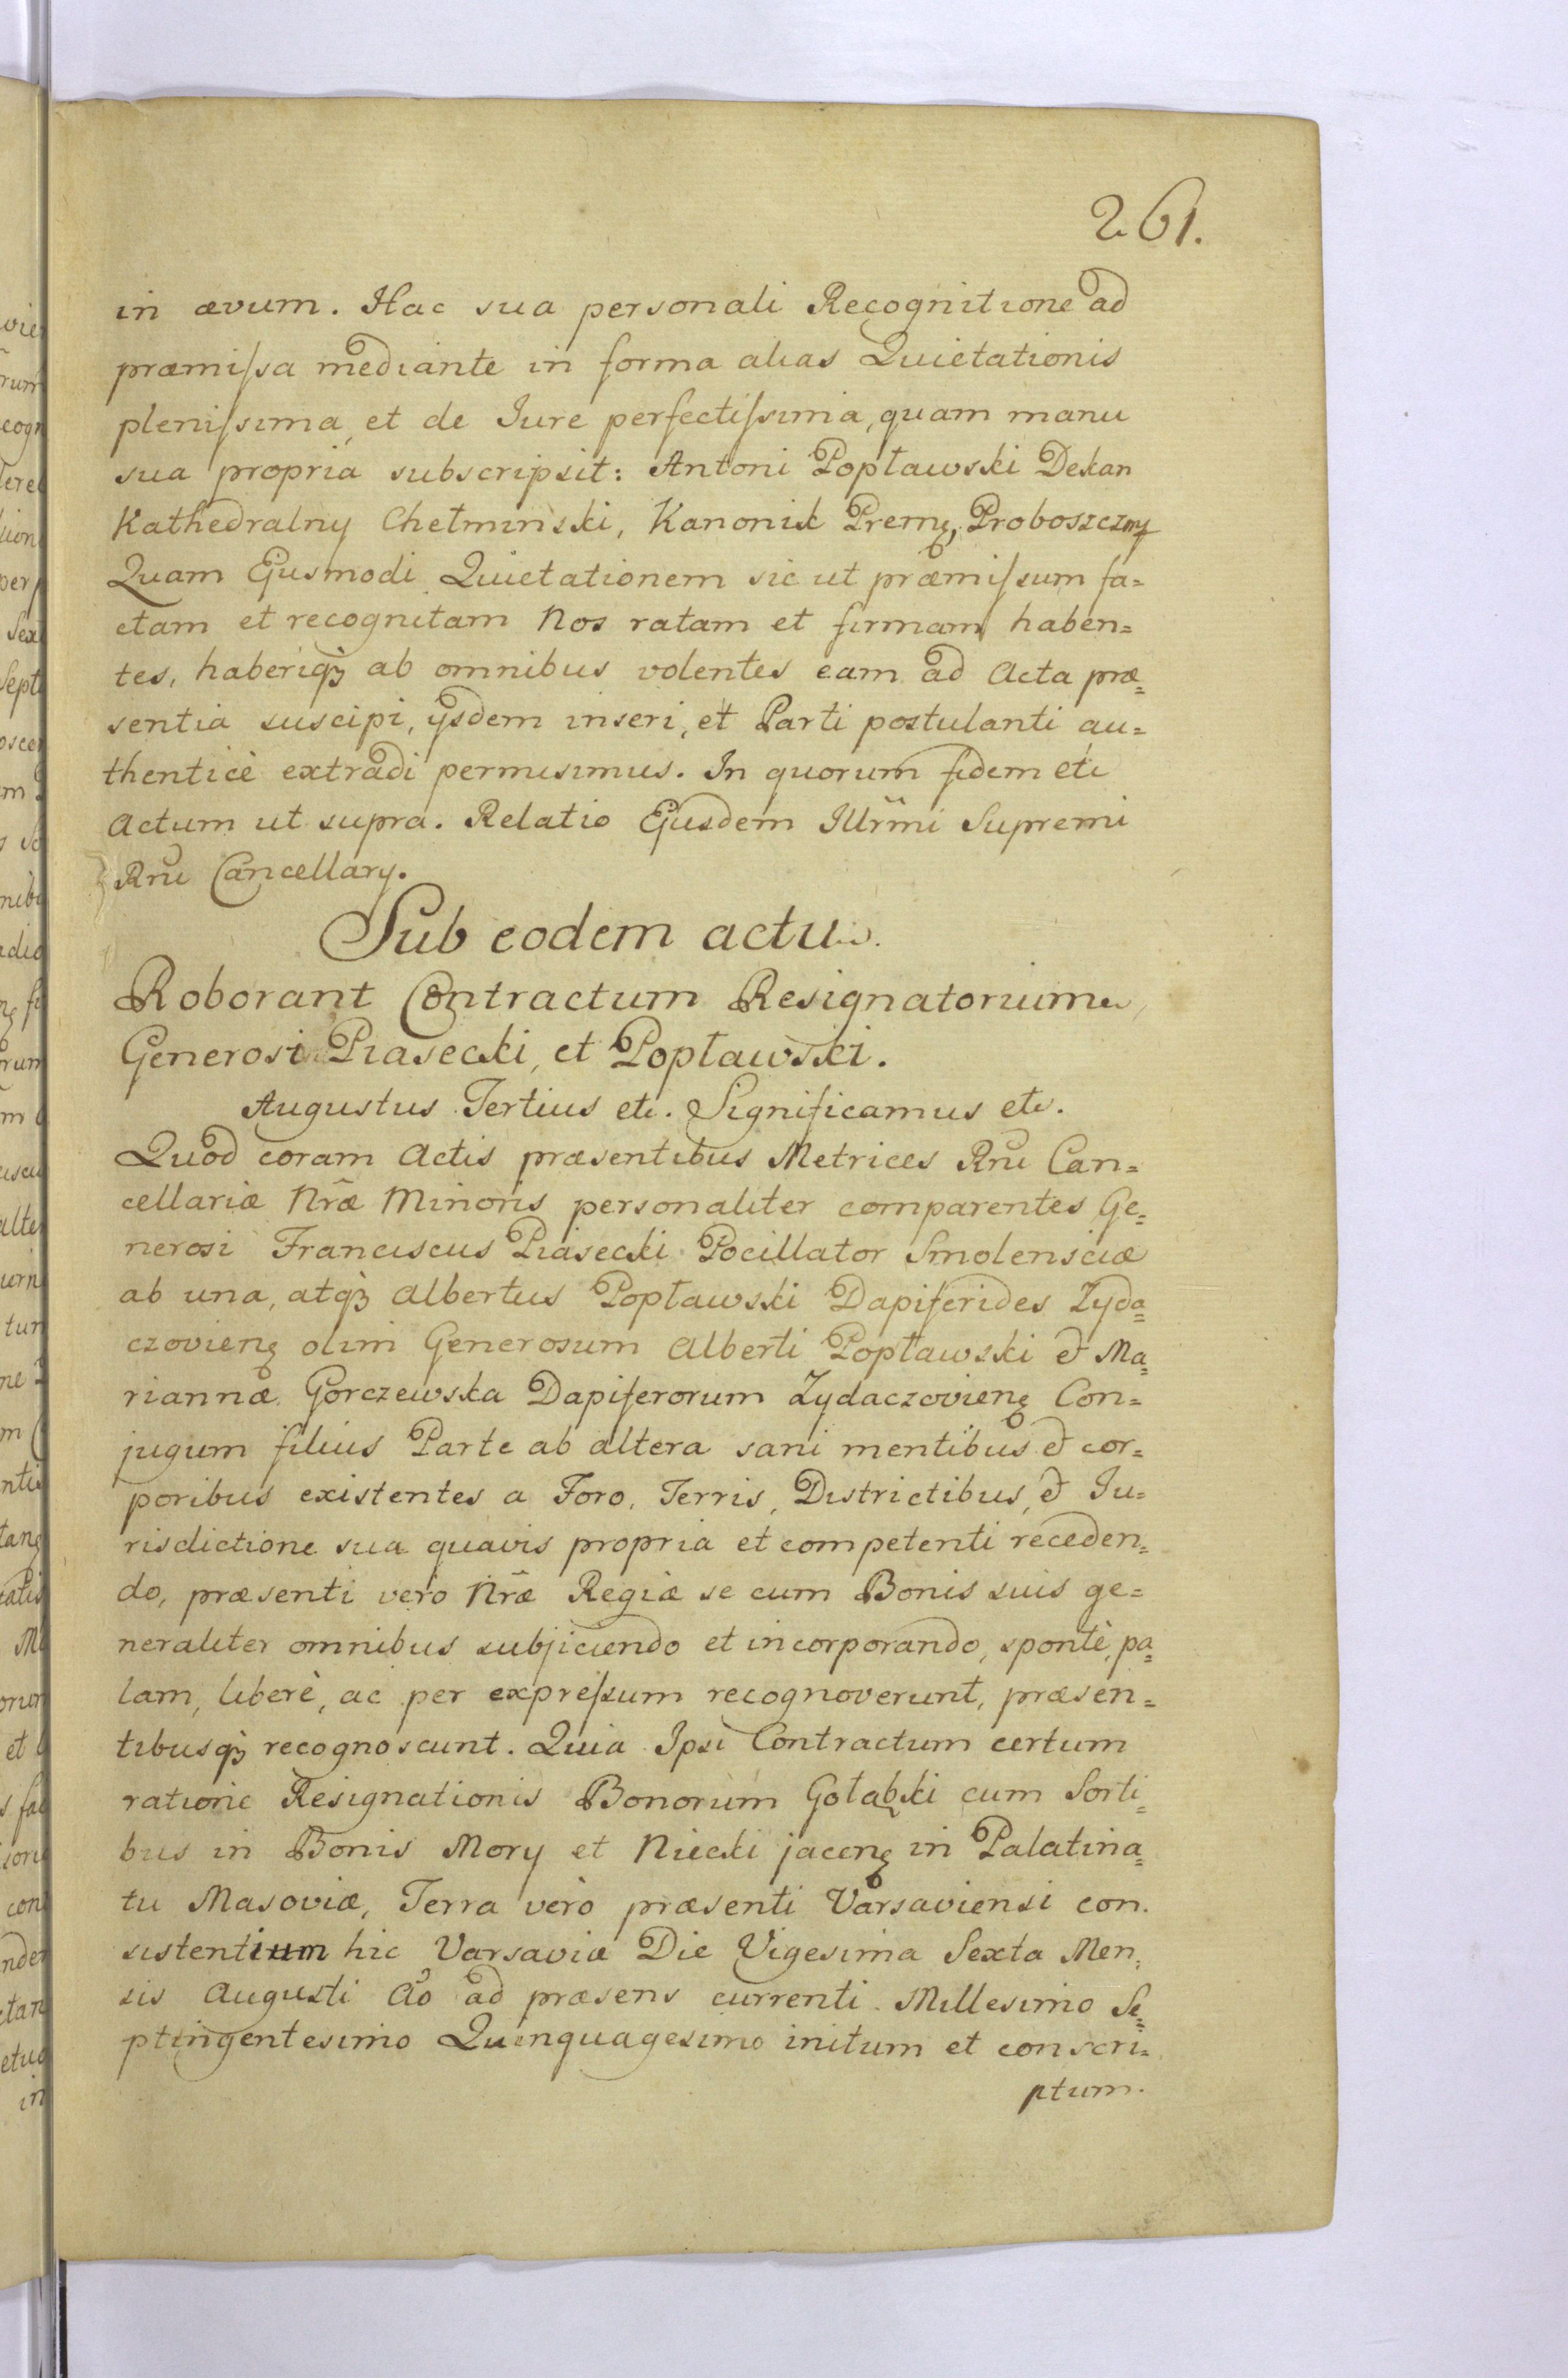 261.
in ævum. Hac sua personali Recognitione ad
præmiſsa mediante in forma alias Quietationis
pleniſsima, et de Iure perfectiſsima, quam manu
sua propria subscripsit: Antoni Popławski Dekan
Kathedralny Chełminski, Kanonik Premę, Proboszcz mp
Quam Ejusmodi Quietationem sic ut præmiſsum fa=
ctam et recognitam Nos ratam et firmam haben=
tes, haberiqȝ ab omnibus volentes eam ad Acta præ=
sentia suscipi, ijsdem inseri, et Parti postulanti au=
thenticè extradi permisimus. In quorum fidem etc
Actum ut supra. Relatio Ejusdem Illr̃mi Supremi
Rnũ Cancellary.
Sub eodem actu.
Roborant Contractum Resignatorium
Generosi Piasecki, et Popławski.
Augustus Tertius etc. Significamus etc.
Quod coram Actis præsentibus Metrices Rnũ Can=
cellariæ Nr̃æ Minoris personaliter comparentes Ge=
nerosi Franciscus Piasecki Pocillator Smolensciæ
ab una, atqȝ Albertus Popławski Dapiferides Zyda=
czovienę olim Generosum Alberti Popławski et Ma=
riannæ Gorczewska Dapiferorum Zydaczovienę Con=
jugum filius Parte ab altera sani mentibus et cor=
poribus existentes a Foro, Terris, Districtibus, et Iu=
risdictione sua quavis propria et competenti receden=
do, præsenti verò Nr̃æ Regiæ se cum Bonis suis ge=
neraliter omnibus subjiciendo et incorporando, spontè, pa=
lam, liberè, ac per expreſsum recognoverunt, præsen=
tibusqȝ recognoscunt. Quia Ipsi Contractum certum
ratione Resignationis Bonorum Gołąbki cum Sorti=
bus in Bonis Mory et Niecki jacenę in Palatina=
tu Masoviæ, Terra verò præsenti Varsaviensi con=
sistentium hic Varsaviæ Die Vigesima Sexta Men=
sis Augusti Aõ ad præsens currenti Millesimo Se=
ptingentesimo Quinquagesimo initum et conscri=
ptum.